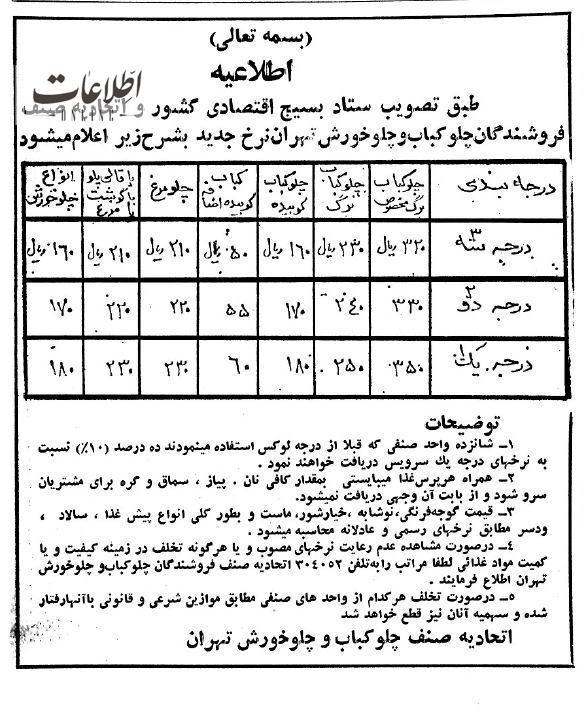 (بسمه تعالی)
اطلاعیه
اطلاعات
طبق تصویب ستاد بسیج اقتصادی کشور و اتحادیه صنف
فروشندگان چلوکباب و چلوخورش تهران نرخ جدید بشرح زیر اعلام میشود
درجه بندی چلوکباب برگ مخصوص چلوکباب برگ چلوکباب کوبیده کباب کوبیده اضافه چلومرغ باقالی پلو با گوشت یا مرغ انواع چلوخورش
درجه سه ۳ ۳۲۰ ریال ۲۳۰ ریال ۱۶۰ ریال ۵۰ ریال ۲۱۰ ریال ۲۱۰ ریال ۱۶۰ ریال
درجه دو ۲ ۳۳۰ ۲۴۰ ۱۷۰ ۵۵ ۲۲۰ ۲۲۰ ۱۷۰
درجه یک ۱ ۳۵۰ ۲۵۰ ۱۸۰ ۶۰ ۲۳۰ ۲۳۰ ۱۸۰
توضیحات
۱ـ شانزده واحد صنفی که قبلا از درجه لوکس استفاده مینمودند ده درصد (۱۰٪) نسبت
به نرخهای درجه یك سرویس دریافت خواهند نمود .
۲ـ همراه هرپرس غذا میبایستی بمقدار کافی نان . پیاز ، سماق و کره برای مشتریان
سرو شود و از بابت آن وجهی دریافت نمیشود.
۳ـ قیمت گوجه‌فرنگی، نوشابه ، خیارشور، ماست و بطور کلی انواع پیش غذا ، سالاد ،
ودسر مطابق نرخهای رسمی و عادلانه محاسبه میشود .
۴ـ درصورت مشاهده عدم رعایت نرخهای مصوب و یا هرگونه تخلف در زمینه کیفیت و یا
کمیت مواد غذائی لطفا مراتب را به‌تلفن ۳۰۴۰۵۲ اتحادیه صنف فروشندگان چلوکباب و چلوخورش
تهران اطلاع فرمایند .
۵ـ درصورت تخلف هرکدام از واحد های صنفی مطابق موازین شرعی و قانونی باآنهارفتار
شده و سهمیه آنان نیز قطع خواهد شد
اتحادیه صنف چلوکباب و چلوخورش تهران